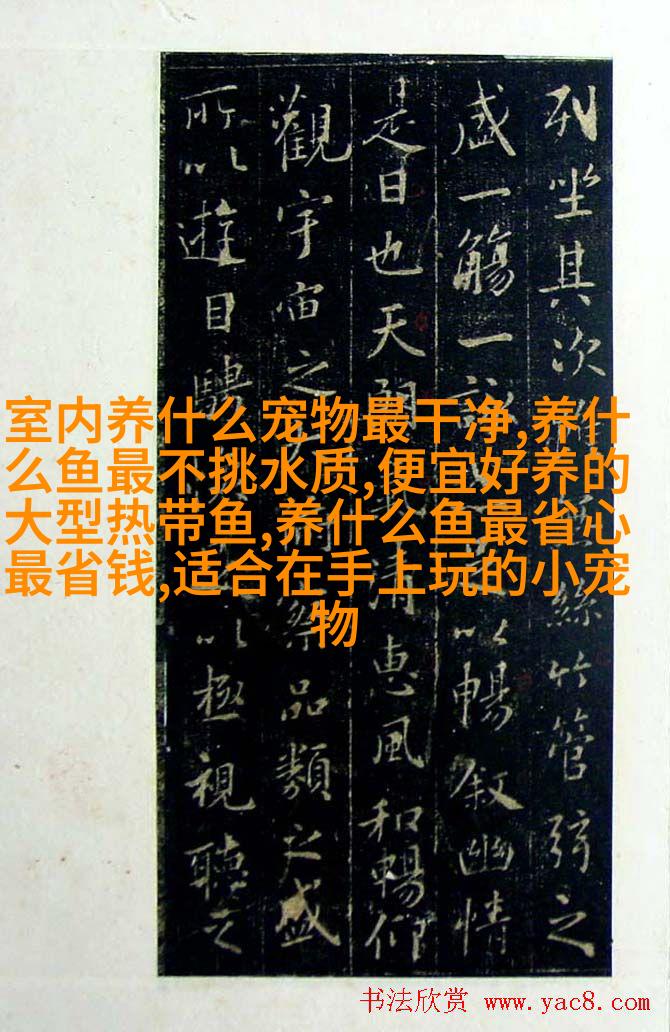 列坐其次雖絲竹管弦之
盛一觴一詠以暢叙幽情
是日也天朗清惠風和暢仰
觀宇宙之察品類之盛
所以遊目騁以極視聽之
室内养什么宠物最干净,养什
么鱼最不挑水质,便宜好养的
大型热带鱼,养什么鱼最省心
最省钱,适合在手上玩的小宠
物
书法欣赏 www.yac8.com